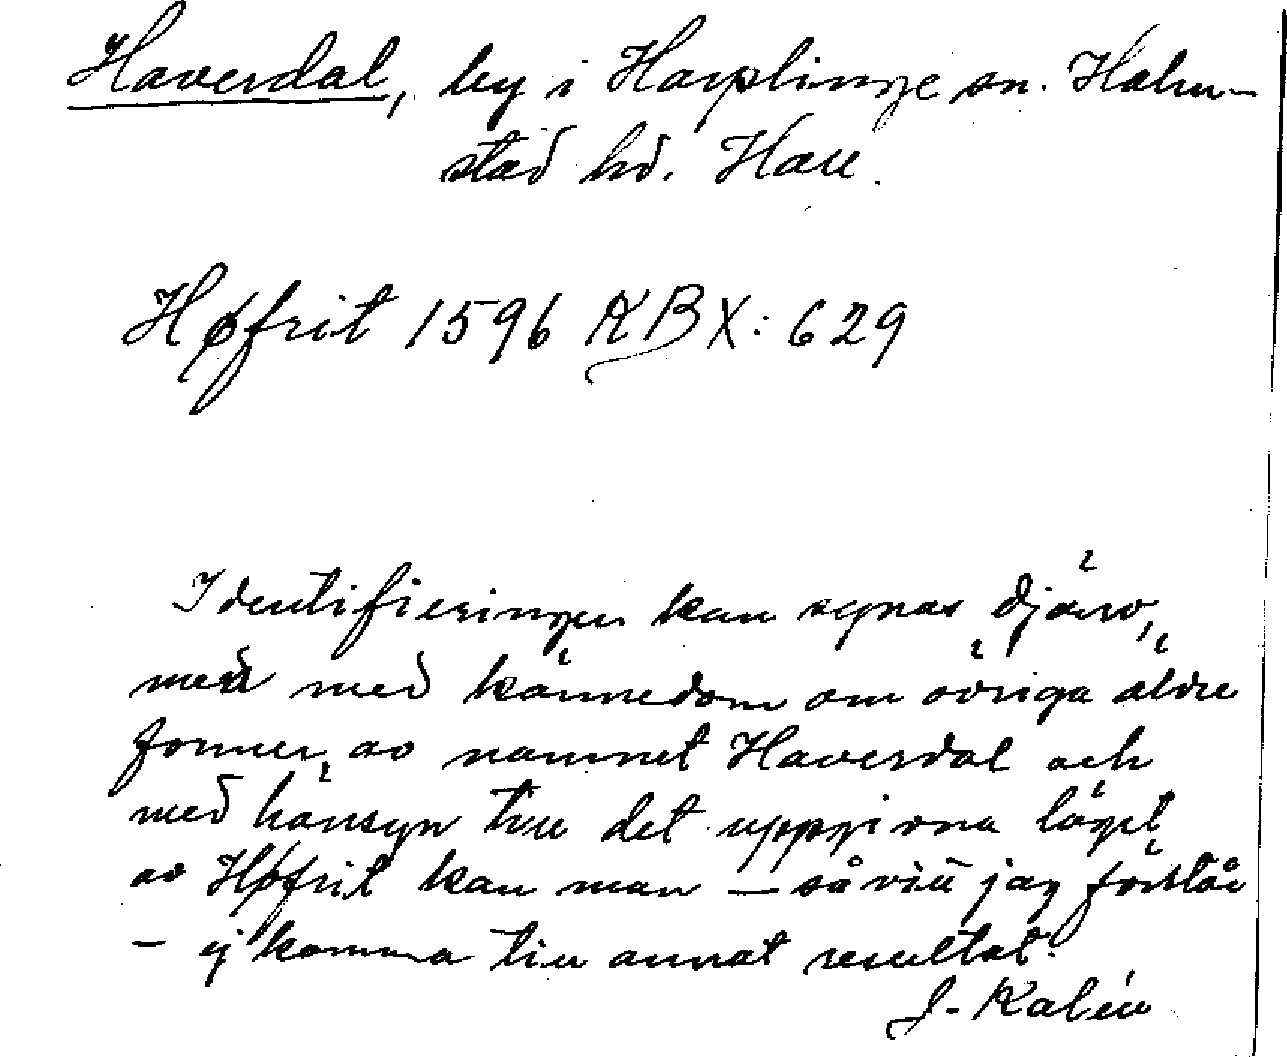 Haverdal, by i Harplinge sn. Halm-
stad hd. Hall.
Høfrit 1596 KBX: 629
Identifieringen kan synas djärv,
men med kännedom om övriga äldre
former av namnet Haverdal och
med hänsyn till det uppgivna läget
av Høfrit kan man – såvitt jag förstår
– ej komma till annat resultat.
J. Kalén